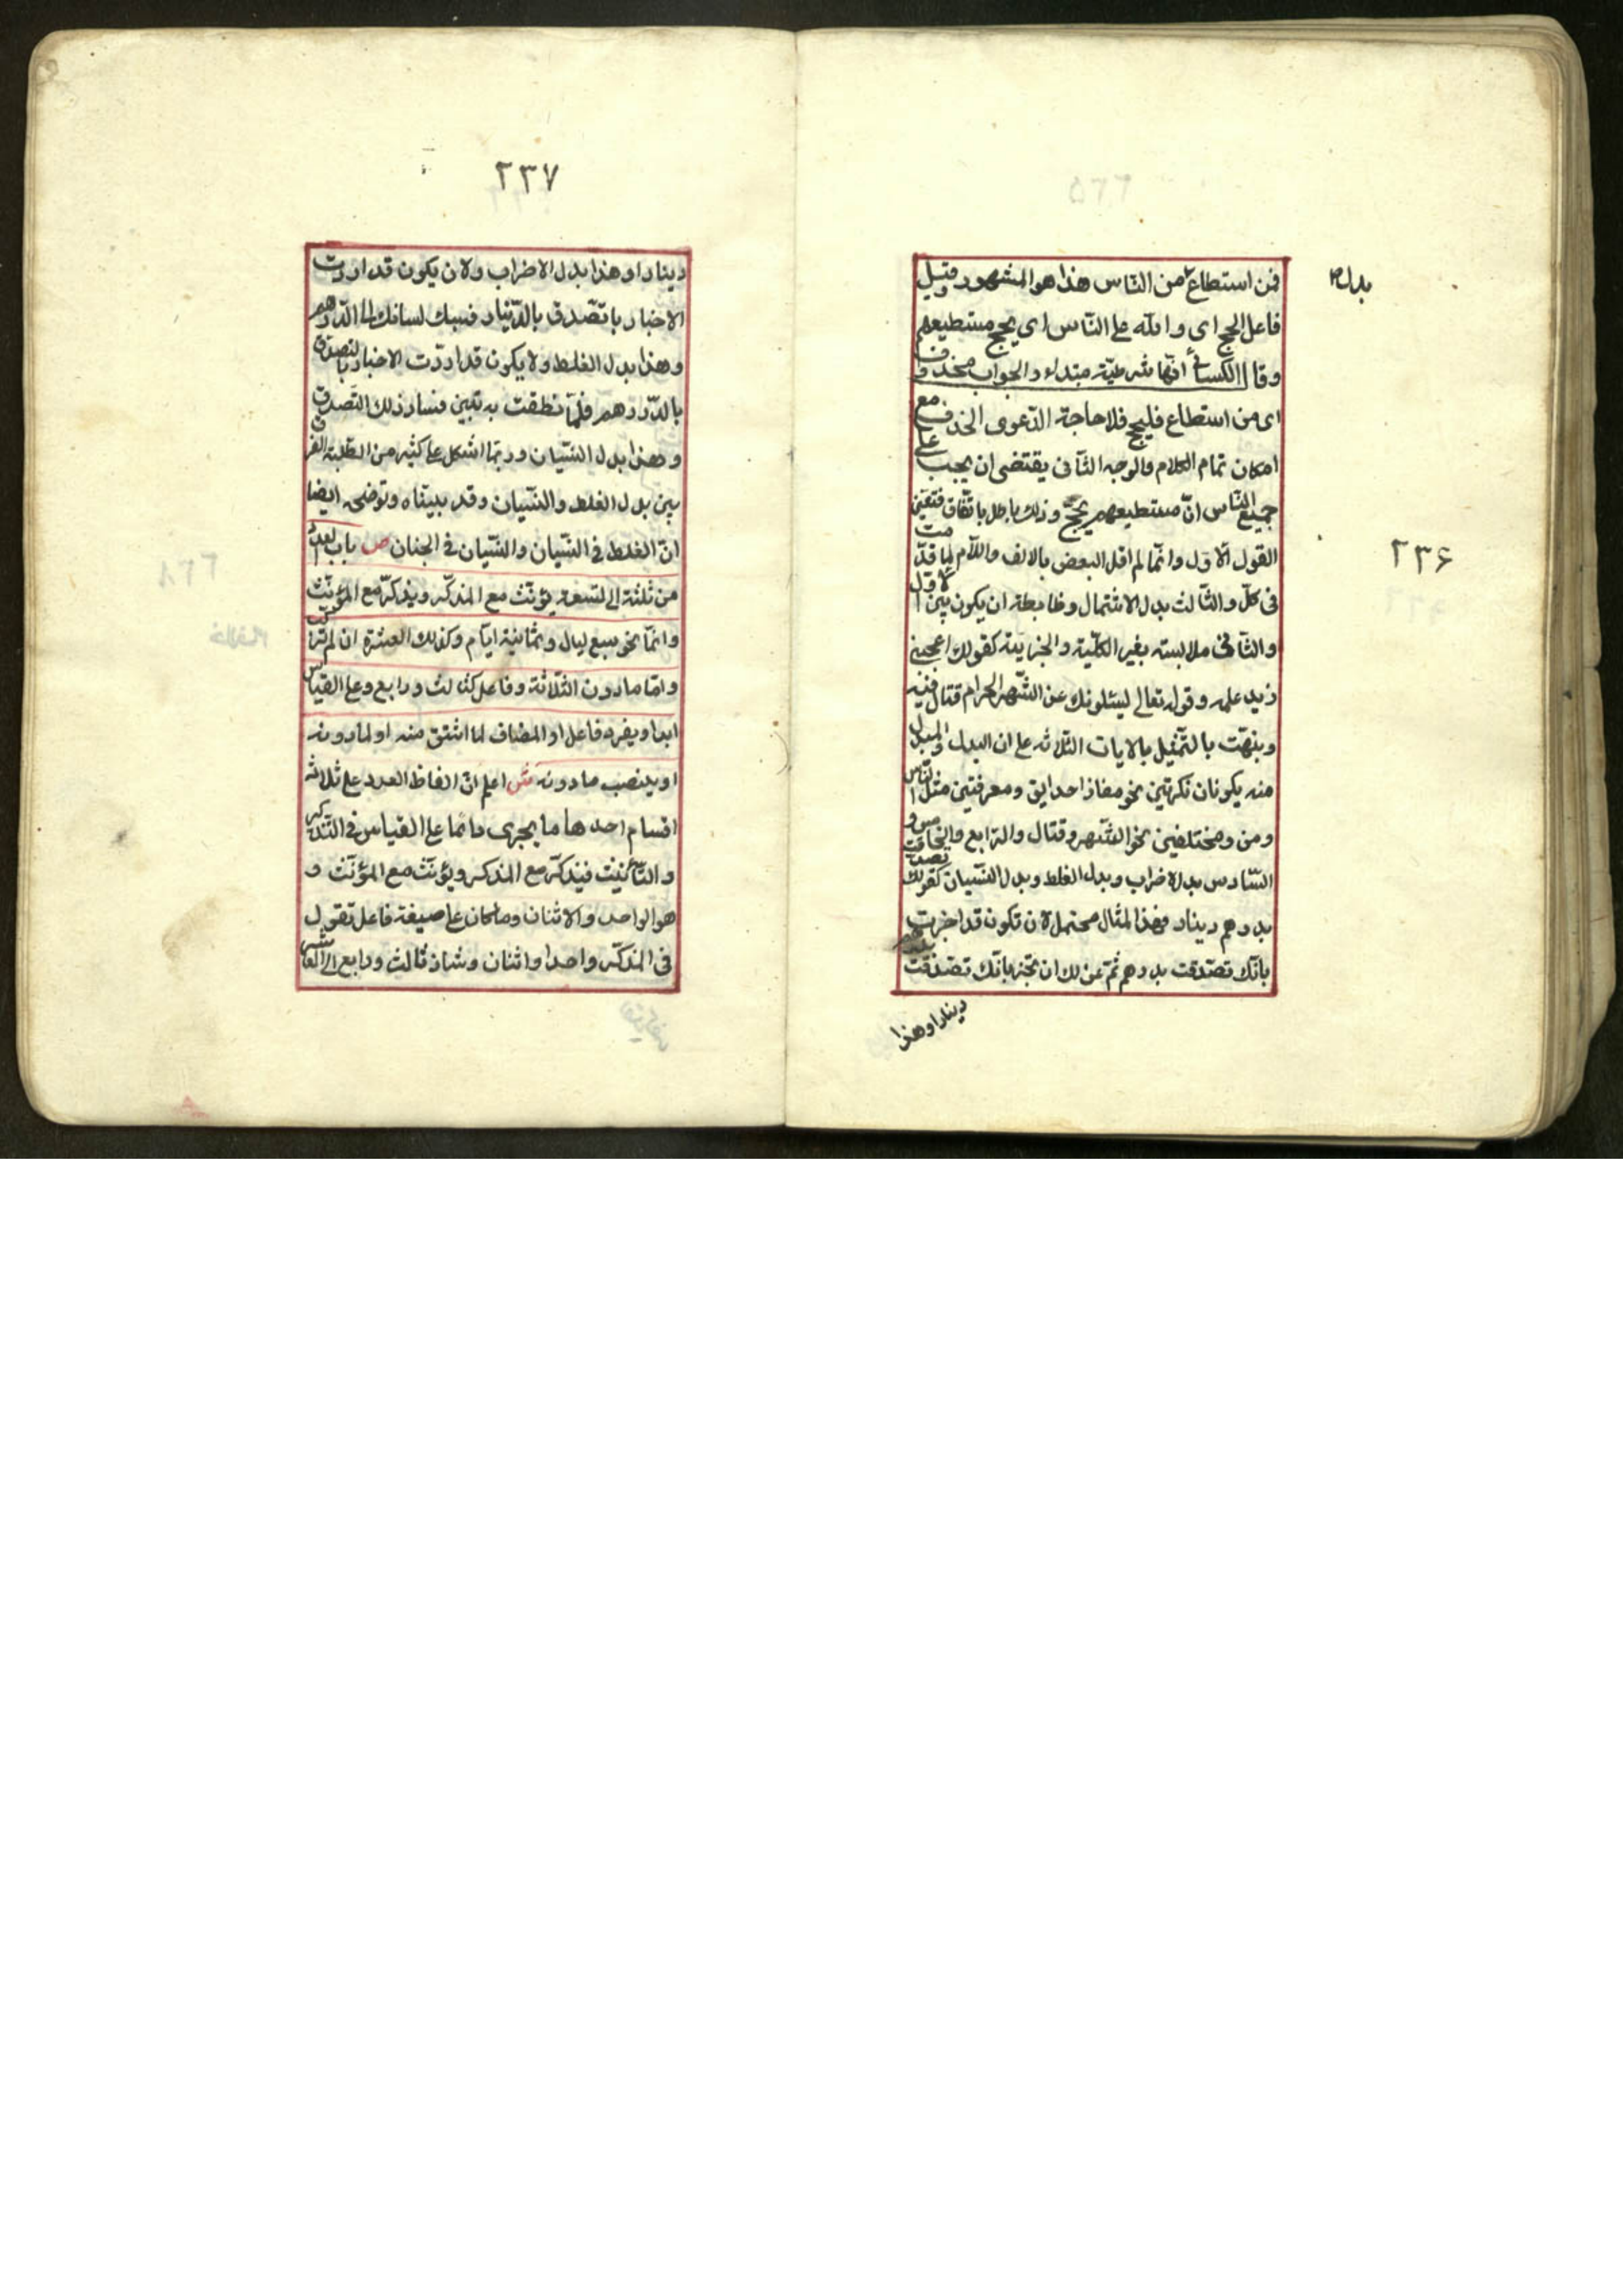 بدل
٢٣۶
فمن استطاع من النّاس هذا هو المشهور وقيل
فاعل الحج اى ولله على النّاس اى يحج مستطيعهم
وقال الكسائى انّها شرطيّة مبتداء والجواب محذوف
اى من استطاع فليحج فلا حاجة الدّعوى الحذف مع
امكان تمام الكلام والوجه الثّانى يقتضى ان يجب على
جميع النّاس انّ مستطيعهم يحجّ وذلك باطل باتّفاق فتعيّن
القول الاوّل وانّما لم اقل البعض بالالف واللّام لما قدّمت
فى كلّ والثّالث بدل الاشتمال وضابطه ان يكون بين الاوّل
والثّانى ملابسته بغير الكلّية والجزئيّة كقولك اعجبنى
زيد علمه وقوله تعالى يسئلونك عن الشّهر الحرام قتال فيه
ونبهّت بالتّمثيل بالايات الثّلاثه على ان البدل والمبدل
منه يكونان نكرتين نحو مفازا حدايق ومعرفتين مثل النّاس
ومن ومختلفين نحو الشّهر وقتال والرّابع والخامس و
السّادس بدل الاضراب وبدل الغلط وبدل النّسيان كقولك تصدّقت
بدرهم دينار فهذا المثال محتمل لان تكون قد اخبرت
بانّك تصدّقت بدرهم ثمّ عن لك ان تخبر بانّك تصدّقت
دينارا وهذا
٢٣٧
دينارا وهذا بدل الاضراب ولان يكون قد اردت
الاخبار بالتّصدق بالدّينار فسبك لسانك الى الدّرهم
وهذا بدل الغلط ولا يكون قد اردّت الاخبار بالتصدق
بالدّرهم فلمّا نطقت به تبين فساد ذلك التّصدق
وهذا بدل النّسيان وربّما اشكل على كثير من الطّلبة الفرق
بين بدل الغلط والنّسيان وقد بيّناه وتوضحه ايضا
انّ الغلط فى النّسيان والنّسيان فى الجنان ص باب العدد
من ثلثة الى لتسعة يؤنّث مع المذكّر ويذكّر مع المؤنّث
وانّما نحو سبع ليال وثمانية ايّام وكذلك العشرة ان لم تركّب
وامّا مادون الثّلاثة وفاعل كثالث ورابع وعلى القياس
ابدا ويفرد فاعل او المضاف لما اشتق منه او لما دونه
او ينصب مادونه ش اعلم انّ الفاظ العدد على ثلاثه
اقسام احدها ما يجرى دائما على القياس فى التّذكير
والتّأنيث فيذكّر مع المذكر ويؤنّث مع المؤنّث و
هو الواحد والاثنان وماكان على صيغة فاعل تقول
فى المذكّر واحدا واثنان وشاذ ثالث ورابع الى العاشر